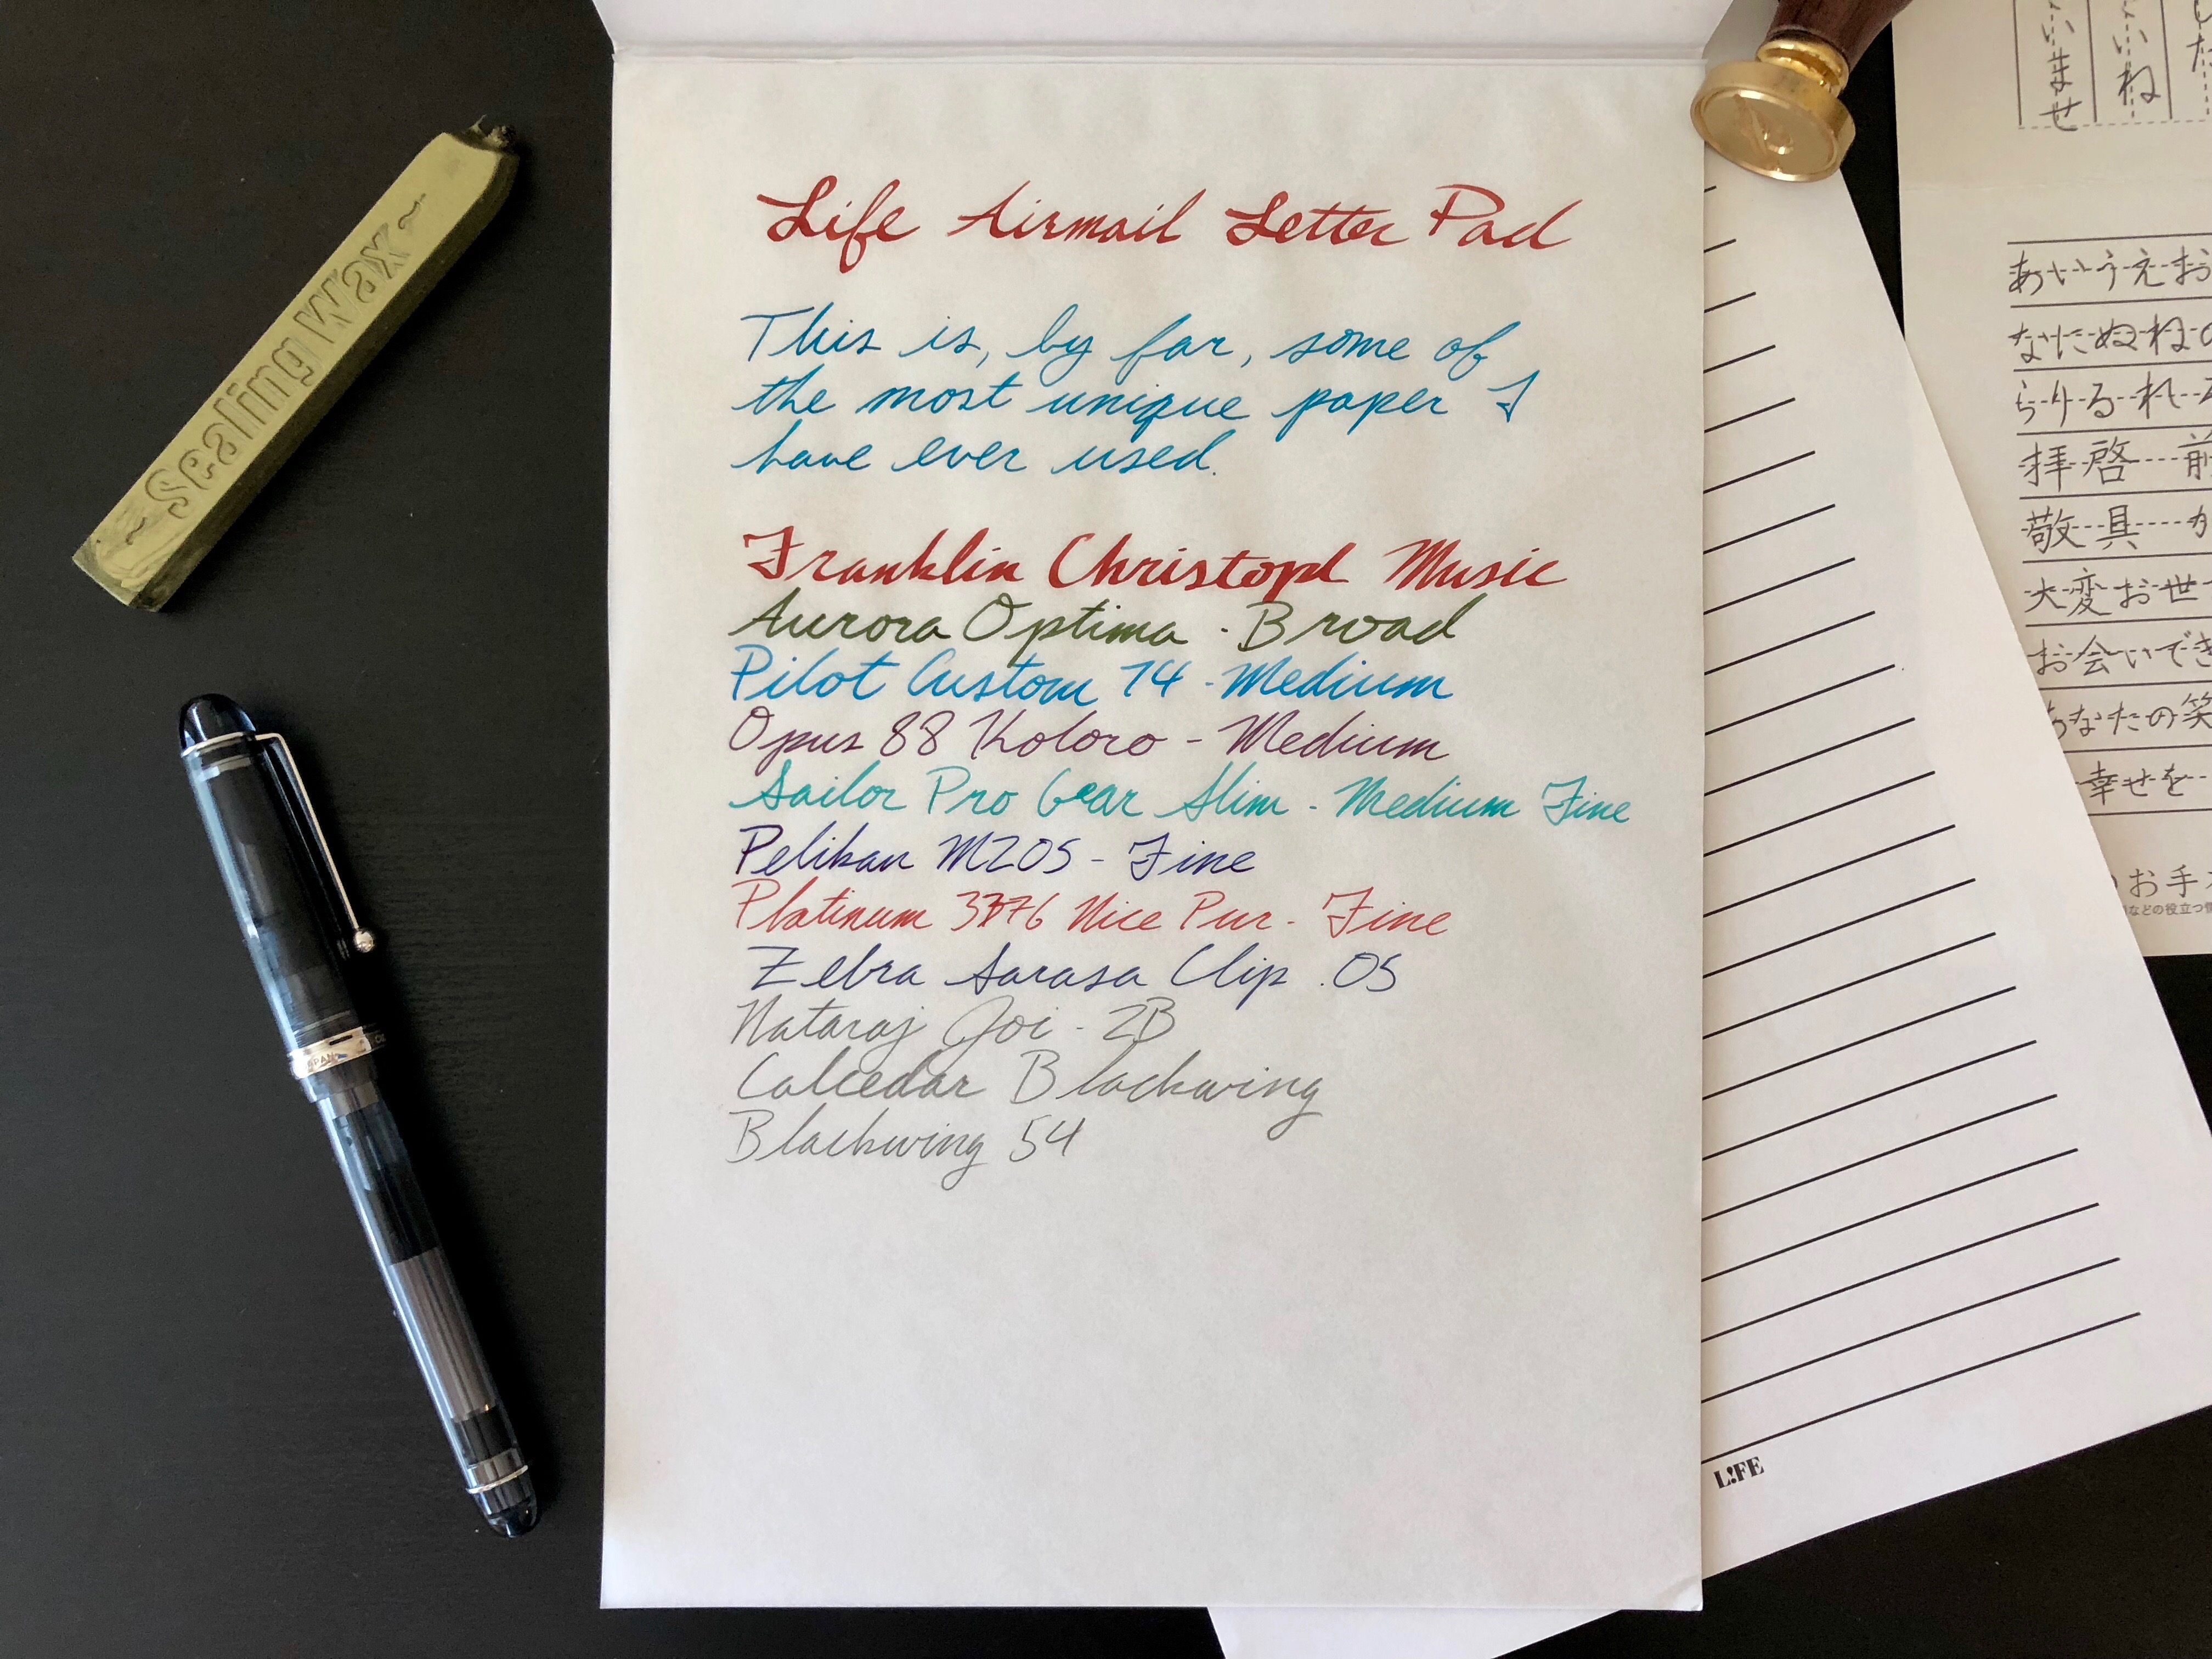 Life Airmail Letter Pad
This is, by far, some of
the most unique paper I
have ever used.
Franklin Christoph Music
Aurora Optima - Broad
Pilot Custom 74 - Medium
Opus 88 Koloro - Medium
Sailor Pro Gear Slim - Medium Fine
Pelikan M205 - Fine
Platinum 3776 Nice Pur - Fine
Zebra Sarasa Clip .05
Nataraj Joi - 2B
Calcedar Blackwing
Blackwing 54
~ Sealing Wax ~
JAPAN
L!FE
いませ
いね
した
あいうえお
なにぬねの
らりるれ
拝啓 前
敬具 か
大変お世
お会いでき
あなたの笑
幸せを
のお手
などの役立つ情